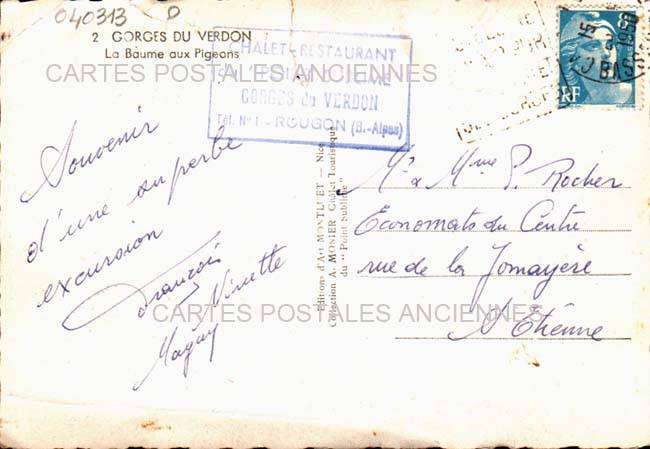 040313 D
2 GORGES DU VERDON
La Baume aux Pigeons
CHALET-RESTAURANT
GORGES du VERDON
Tél. N° 1 - ROUGON (B.-Alpes)
RF
CARTES POSTALES ANCIENNES
Souvenir
d'une superbe
excursion
François
Maguy
Editions d'Art MONTLUET — Nice
Collection A. MONIER Chalet Touristique
du "Point Sublime"
Mr & Mme P. Rocher
Economats du Centre
rue de la Jomayère
St Etienne
CARTES POSTALES ANCIENNES